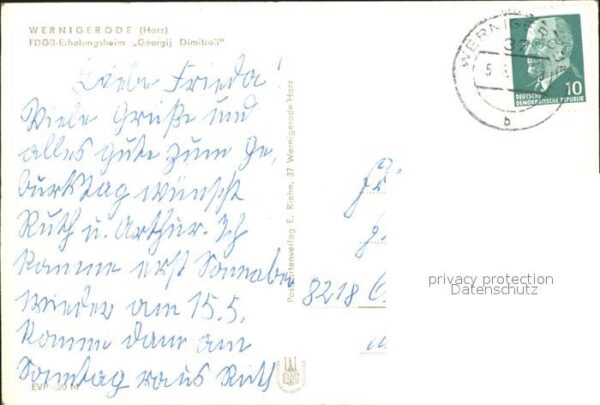 WERNIGERODE (Harz)
FDGB-Erholungsheim „Georgij Dimitroff"
Liebe Frieda!
Viele Grüße und
alles gute zum Ge,
burtstag wünscht
Ruth u. Arthur. Ich
komme erst Sonnabend
wieder am 15.5.
komme dann am
Sonntag raus Ruth
EVP -,20 M
Postkartenverlag E. Riehn, 37 Wernigerode/Harz
WERNIGERODE
37
5.
b
10
DEUTSCHE
DEMOKRATISCHE REPUBLIK
8218
privacy protection
Datenschutz